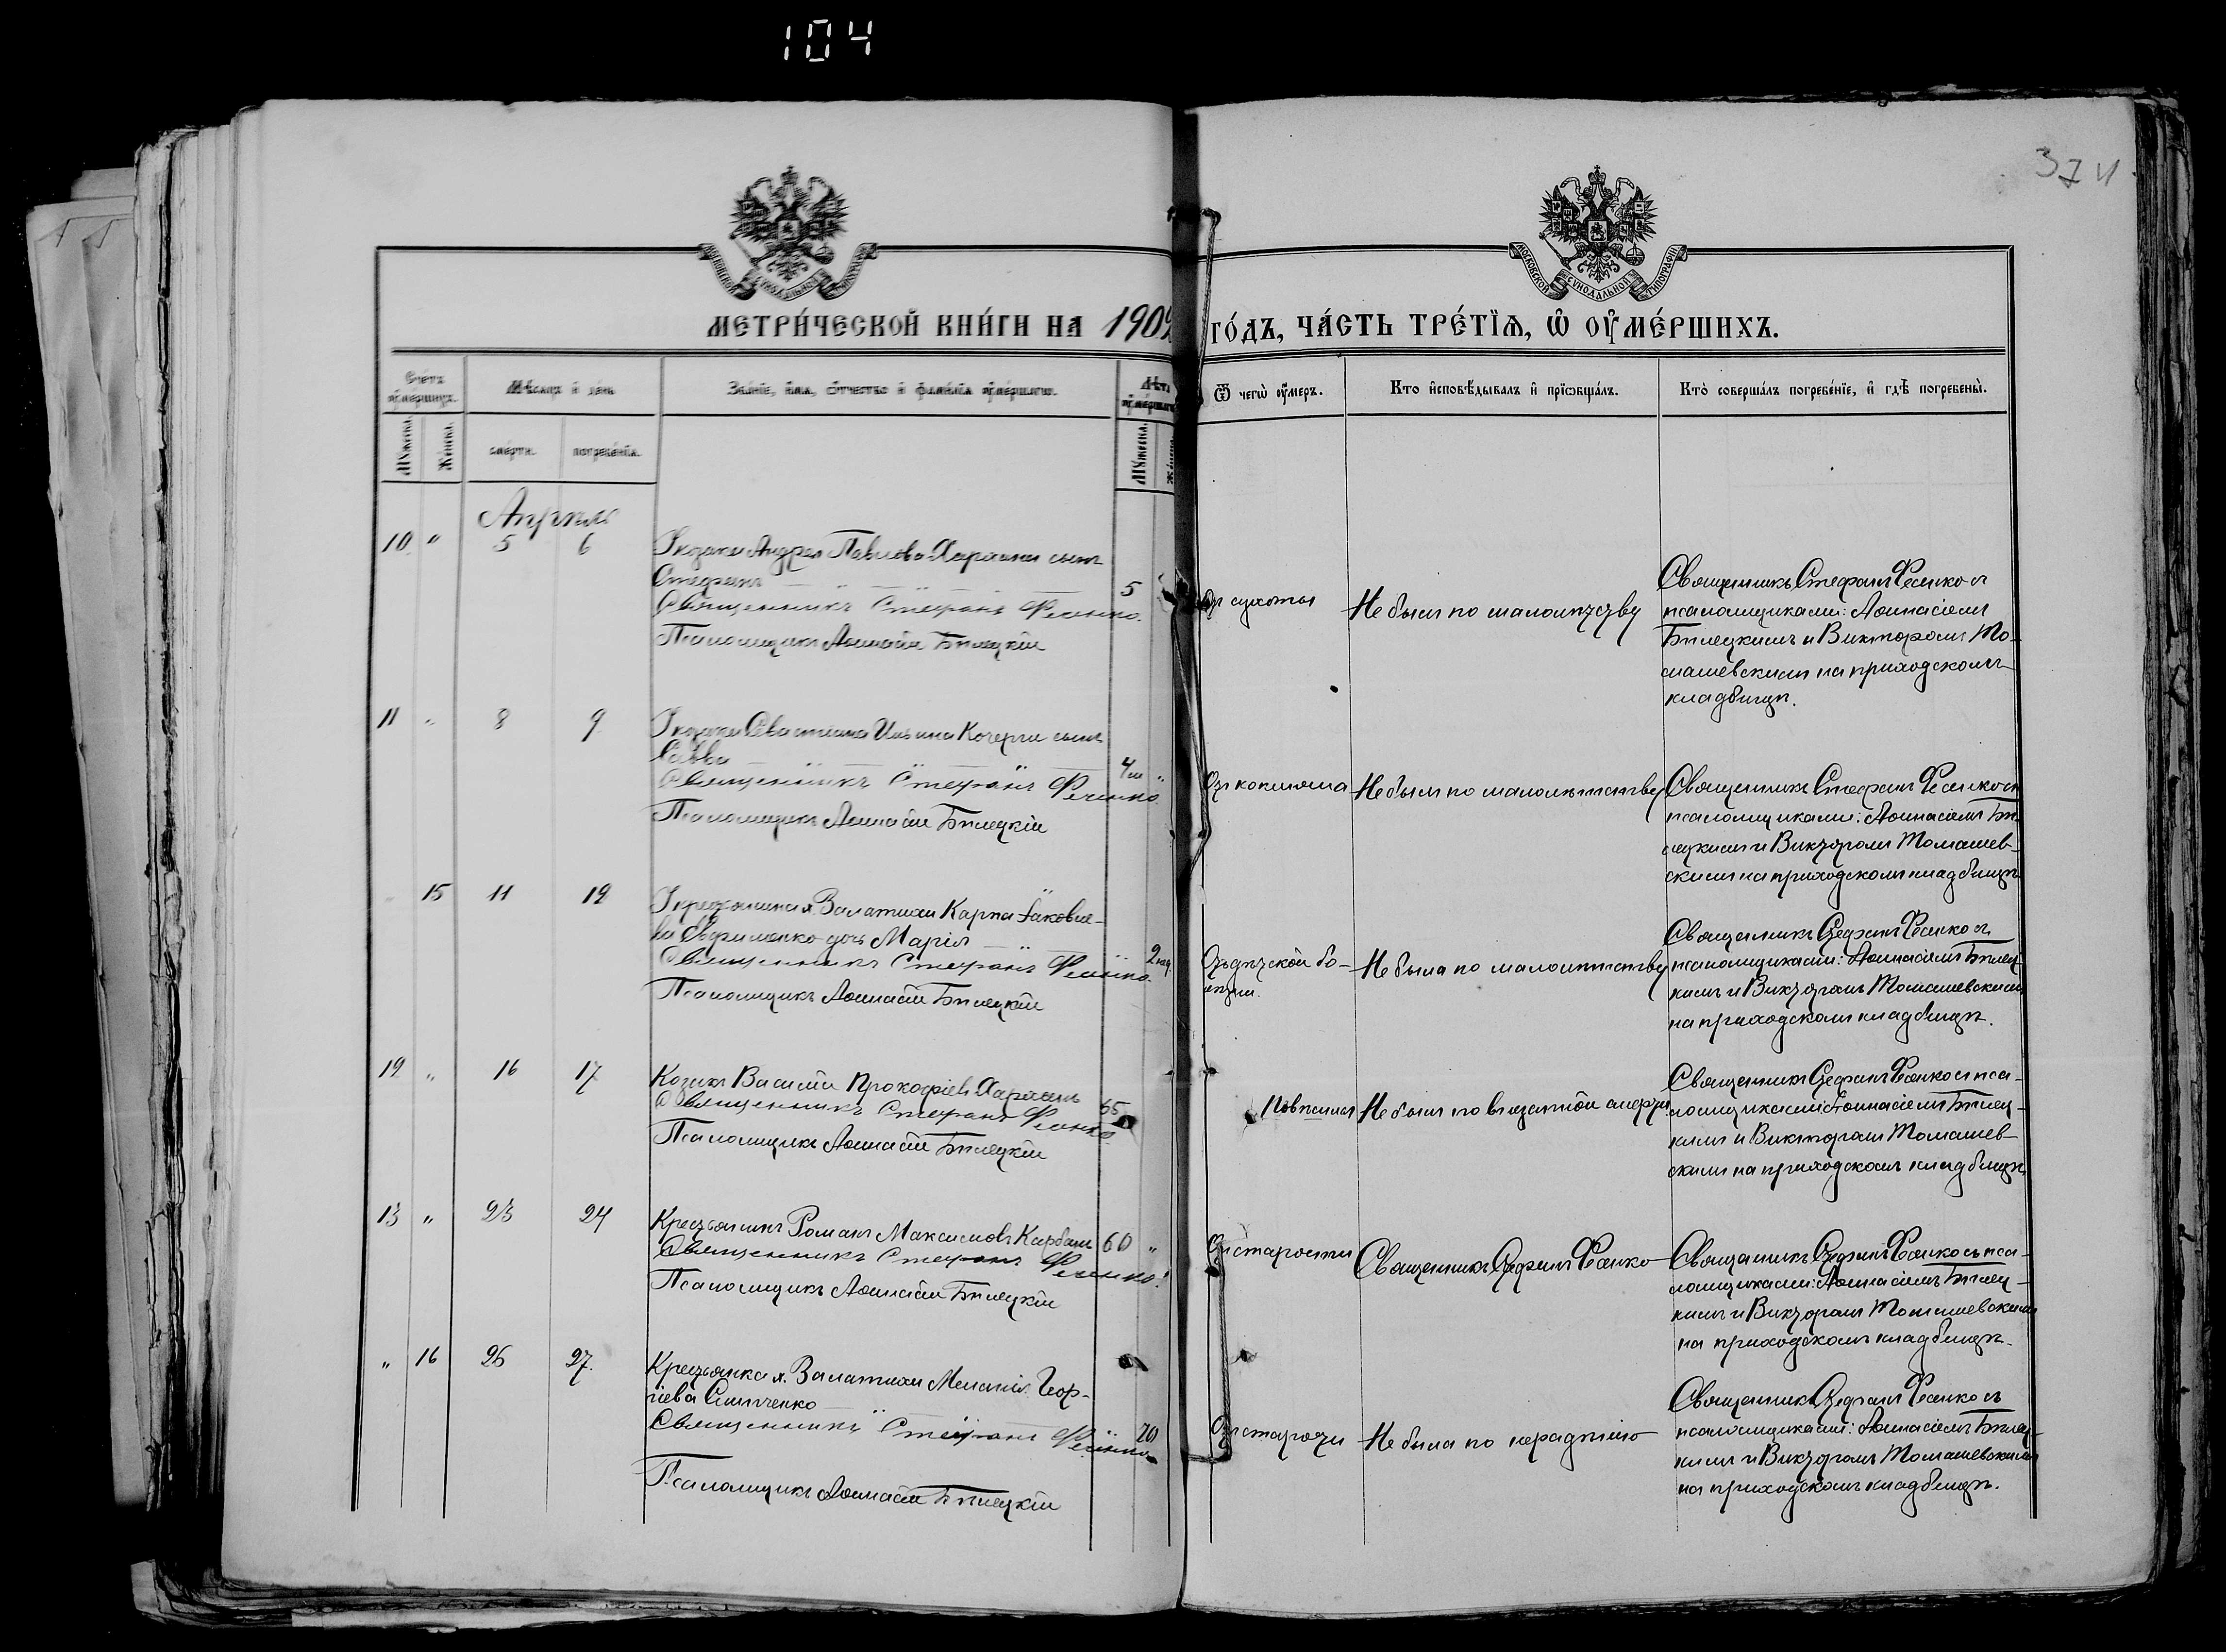 104
374
МОСКОВСКОЙ СѴНОДАЛЬНОЙ ТИПОГРАФІИ
МЕТРИ́ЧЕСКОЙ КНИ́ГИ НА 1909
ГО́ДЪ, ЧА́СТЬ ТРЕ́ТЇѦ, Ѡ҆ ОУ҆МЕ́РШИХЪ.
Сче́тъ оу҆ме́ршихъ.
Мѣ́сѧцъ и҆ де́нь
Зва́нїе, и҆́мѧ, ѻ҆́тчество и҆ фами́лїа оу҆ме́ршагѡ.
Лѣ́та оу҆ме́ршагѡ
Ѿ чегѡ̀ оу҆́меръ.
Кто̀ и҆сповѣ́дывалъ и҆ прїѡбща́лъ.
Кто̀ соверша́лъ погребе́нїе, и҆ гдѣ̀ погребены̀.
Мꙋ́жеска.
Же́нска.
сме́рти.
погребе́нїа.
Мꙋ́жеска.
Апрѣль
10 " 5 6
Козака Андрея Павлова Харахаш сынъ
Стефанъ
5
Священникъ Стефанъ Фесенко.
Псаломщикъ Аѳанасій Бѣлецкій
От сухоты
Не былъ по малолѣтству
Священникъ Стефанъ Фесенко съ
псаломщиками: Аѳанасіемъ
Бѣлецкимъ и Викторомъ То-
машевскимъ на приходскомъ
кладбищѣ.
11 " 8 9
Козака Севастіана Ильина Кочерги сынъ
Савва
4 м "
Священникъ Стефанъ Фесенко
Псаломщикъ Аѳанасій Бѣлецкій
От коклюша
Не былъ по малолѣтству
Священникъ Стефанъ Фесенко съ
псаломщиками: Аѳанасіемъ Бѣ-
лецкимъ и Викторомъ Томашев-
скимъ на приходскомъ кладбищѣ
15 11 12
Крестьянина х. Залатихи Карпа Іаковле-
ва Евфименко дочь Марія
2 нед.
Священникъ Стефанъ Фесенко.
Псаломщикъ Аѳанасій Бѣлецкій
От дѣтской бо-
лѣзни.
Не была по малолѣтству
Священникъ Стефанъ Фесенко съ
псаломщиками: Аѳанасіемъ Бѣлец-
кимъ и Викторомъ Томашевскимъ
на приходскомъ кладбищѣ.
12 " 16 17
Козакъ Василій Прокофіевъ
Священникъ Стефанъ Фесенко
Псаломщикъ Аѳанасій Бѣлецкій
Не былъ по внезапной смерти
Священникъ Стефанъ Фесенко съ пса-
ломщиками: Аѳанасіемъ Бѣлец-
кимъ и Викторомъ Томашев-
скимъ на приходскомъ кладбищѣ
13 " 23 24
Крестьянинъ Романъ Максимовъ Карбанъ
60 "
Священникъ Стефанъ Фесенко.
Псаломщикъ Аѳанасій Бѣлецкій
От старости
Священникъ Стефанъ Фесенко
Священникъ Стефанъ Фесенко съ пса-
ломщиками: Аѳанасіемъ Бѣлец-
кимъ и Викторомъ Томашевскимъ
на приходскомъ кладбищѣ.
" 16 26 27.
Крестьянка х. Залатихи Меланія Геор-
гіева
70
Священникъ Стефанъ Фесенко
Псаломщикъ Аѳанасій Бѣлецкій
От старости
Не была по нерадѣнію
Священникъ Стефанъ Фесенко съ
псаломщиками: Аѳанасіемъ Бѣлец-
кимъ и Викторомъ Томашевскимъ
на приходскомъ кладбищѣ.